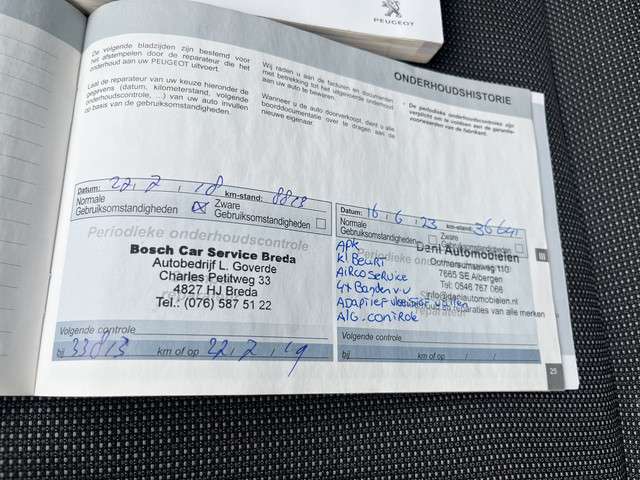 PEUGEOT
ONDERHOUDSHISTORIE
De volgende bladzijden zijn bestemd voor
het afstempelen door de reparateur die het
onderhoud aan uw PEUGEOT uitvoert.
Laat de reparateur van uw keuze hieronder de
gegevens (datum, kilometerstand, volgende
onderhoudscontrole, ...) van uw auto invullen
op basis van de gebruiksomstandigheden.
Wij raden u aan de facturen en documenten
met betrekking tot het uitgevoerde onderhoud
aan uw auto te bewaren.
Wanneer u de auto doorverkoopt, dient u alle
boorddocumentatie over te dragen aan de
nieuwe eigenaar.
* De periodieke onderhoudscontroles zijn
verplicht om te voldoen aan de garantie-
voorwaarden van de fabrikant.
Datum: 22, 7, 18 km-stand: 8813
Normale
Gebruiksomstandigheden
Zware
Gebruiksomstandigheden
Periodieke onderhoudscontrole
Bosch Car Service Breda
Autobedrijf L. Goverde
Charles Petitweg 33
4827 HJ Breda
Tel.: (076) 587 51 22
Volgende controle
bij 33813 km of op 22, 7, 19
Datum: 16, 6, 23 km-stand:
Normale
Gebruiksomstandigheden
Zware
Gebruiksomstandigheden
Periodieke onderhoudscontrole
Dani Automobielen
7665 SE Albergen
Tel: 0546 767 066
info@daniautomobielen.nl
reparaties van alle merken
APK
KL BEURT
AIRCO SERVICE
4x Banden
ADAPTIEF
ALG. CONTROLE
Volgende controle
bij km of op / /
III
25